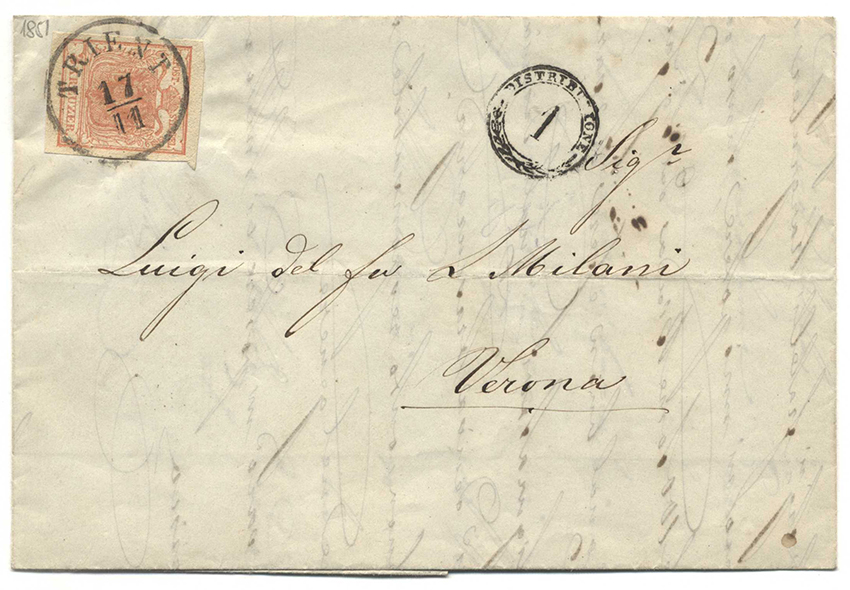 1851
TRIENT
17
11
KREUZER
DISTRIBUZIONE
1
Sigr
Luigi del fu L Milani
Verona